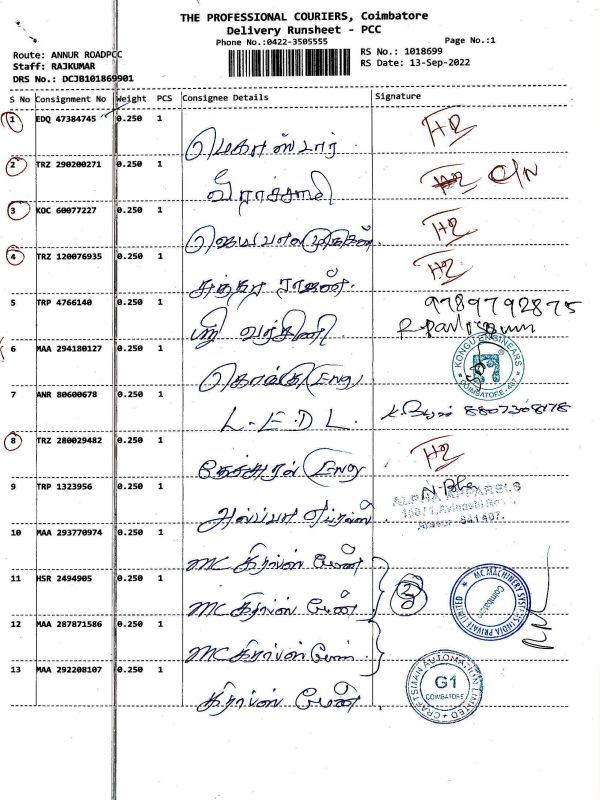 THE PROFESSIONAL COURIERS, Coimbatore
Delivery Runsheet - PCC
Phone No.:0422-3505555
Page No.:1
Route: ANNUR ROADPCC
Staff: RAJKUMAR
DRS No.: DCJB101869901
RS No.: 1018699
RS Date: 13-Sep-2022
S No Consignment No Weight PCS Consignee Details Signature
1 EDQ 47384745 0.250 1 H2
மெகா ஸ்டார்
2 TRZ 290200271 0.250 1 C/N
வீராச்சாமி
3 KOC 60077227 0.250 1 H2
4 TRZ 120076935 0.250 1 H2
சுந்தர ராஜன்.
5 TRP 4766140 0.250 1 9789792875
ஸ்ரீ வர்ஷினி
6 MAA 294180127 0.250 1 KONGU ENGINEERS COIMBATORE
கொங்கு Eng
7 ANR 80600678 0.250 1 8807308178
L.E.D.L.
8 TRZ 280029482 0.250 1 H2
Eng
9 TRP 1323956 0.250 1 ALPHA APPARELS
160/1, Avinashi Road,
Arasur-641407.
10 MAA 293770974 0.250 1
MC
11 HSR 2494905 0.250 1 MC MACHINERY SYSTEMS INDIA PRIVATE LIMITED Coimbatore
MC
12 MAA 287871586 0.250 1
MC
13 MAA 292208107 0.250 1 CRAFTSMAN AUTOMATION LIMITED G1 COIMBATORE